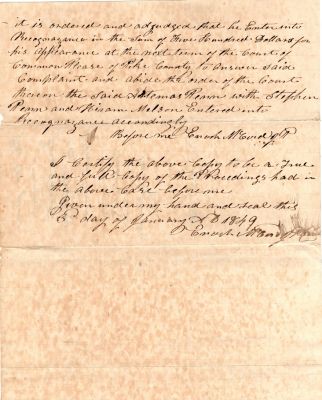 it is ordered and adjudged that he Enter into
Recognizance in the Sum of three Hundred Dollars for
his appearance at the next term of the Court of
Common Pleas of Pike County to Answer Said
Complaint and abide the order of the Court
therein the Said Thomas Penn with Stephen
Penn and Hiram Nelson Entered into
recognizance accordingly
Before me Enoch
I Certify the above Copy to be a True
and full Copy of the Proceedings had in
the above Case before me
Given under my hand and seal this
3rd day of January AD 1849
Enoch